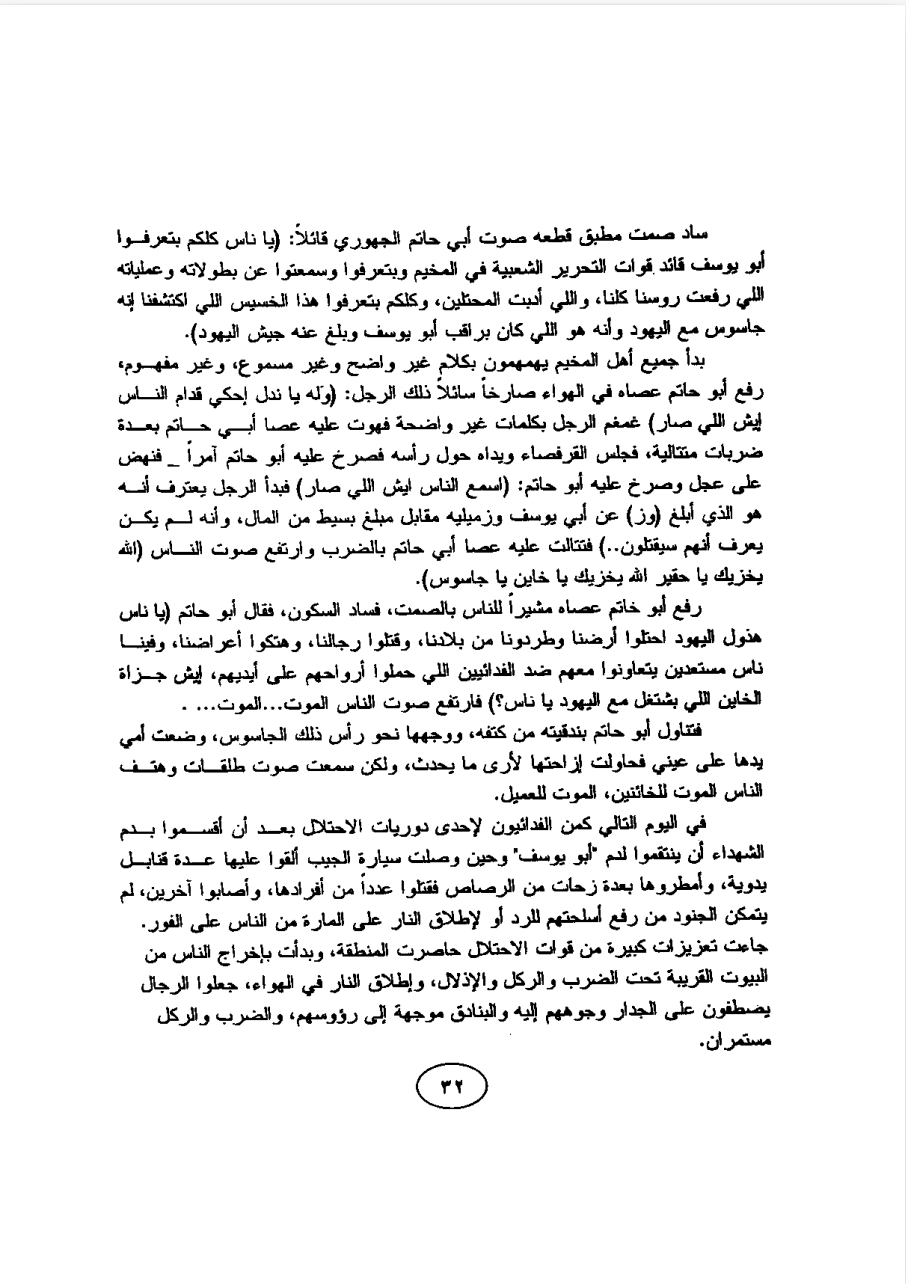 ساد صمت مطبق قطعه صوت أبي حاتم الجهوري قائلاً: (يا ناس كلكم بتعرفـــوا
أبو يوسف قائد قوات التحرير الشعبية في المخيم وبتعرفوا وسمعتوا عن بطولاته وعملياته
اللي رفعت روسنا كلنا، واللي أدبت المحتلين، وكلكم بتعرفوا هذا الخسيس اللي اكتشفنا إنه
جاسوس مع اليهود وأنه هو اللي كان براقب أبو يوسف وبلغ عنه جيش اليهود).
بدأ جميع أهل المخيم يهمهمون بكلام غير واضح وغير مسموع، وغير مفهوم،
رفع أبو حاتم عصاه في الهواء صارخاً سائلاً ذلك الرجل: (وله يا ندل إحكي قدام النــاس
إيش اللي صار) غمغم الرجل بكلمات غير واضحة فهوت عليه عصا أبــي حــاتم بعــدة
ضربات متتالية، فجلس القرفصاء ويداه حول رأسه فصرخ عليه أبو حاتم آمراً _ فنهض
على عجل وصرخ عليه أبو حاتم: (اسمع الناس ايش اللي صار) فبدأ الرجل يعترف أنــه
هو الذي أبلغ (وز) عن أبي يوسف وزميليه مقابل مبلغ بسيط من المال، وأنه لــم يكــن
يعرف أنهم سيقتلون..) فتتالت عليه عصا أبي حاتم بالضرب وارتفع صوت النــاس (الله
يخزيك يا حقير الله يخزيك يا خاين يا جاسوس).
رفع أبو خاتم عصاه مشيراً للناس بالصمت، فساد السكون، فقال أبو حاتم (يا ناس
هذول اليهود احتلوا أرضنا وطردونا من بلادنا، وقتلوا رجالنا، وهتكوا أعراضنا، وفينــا
ناس مستعدين يتعاونوا معهم ضد الفدائيين اللي حملوا أرواحهم على أيديهم، إيش جــزاة
الخاين اللي بشتغل مع اليهود يا ناس؟) فارتفع صوت الناس الموت...الموت... .
فتناول أبو حاتم بندقيته من كتفه، ووجهها نحو رأس ذلك الجاسوس، وضعت أمي
يدها على عيني فحاولت إزاحتها لأرى ما يحدث، ولكن سمعت صوت طلقــات وهتــف
الناس الموت للخائنين، الموت للعميل.
في اليوم التالي كمن الفدائيون لإحدى دوريات الاحتلال بعــد أن أقســموا بــدم
الشهداء أن ينتقموا لدم "أبو يوسف" وحين وصلت سيارة الجيب ألقوا عليها عــدة قنابــل
يدوية، وأمطروها بعدة زحات من الرصاص فقتلوا عدداً من أفرادها، وأصابوا آخرين، لم
يتمكن الجنود من رفع أسلحتهم للرد أو لإطلاق النار على المارة من الناس على الفور.
جاءت تعزيزات كبيرة من قوات الاحتلال حاصرت المنطقة، وبدأت بإخراج الناس من
البيوت القريبة تحت الضرب والركل والإذلال، وإطلاق النار في الهواء، جعلوا الرجال
يصطفون على الجدار وجوههم إليه والبنادق موجهة إلى رؤوسهم، والضرب والركل
مستمران.
٣٢